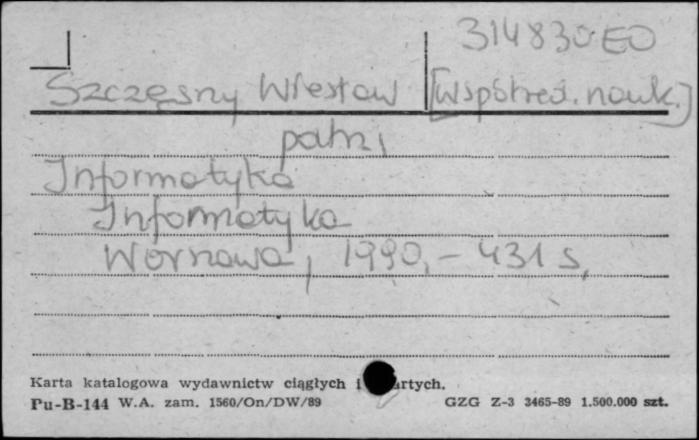 314830 EO
Szczęsny Wiesław [Współred. nauk.]
patrz
Informatyka
Informatyka
Warszawa, 1990, - 431 s.
Karta katalogowa wydawnictw ciągłych i artych.
Pu-B-144 W.A. zam. 1560/On/DW/89 GZG Z-3 3465-89 1.500.000 szt.